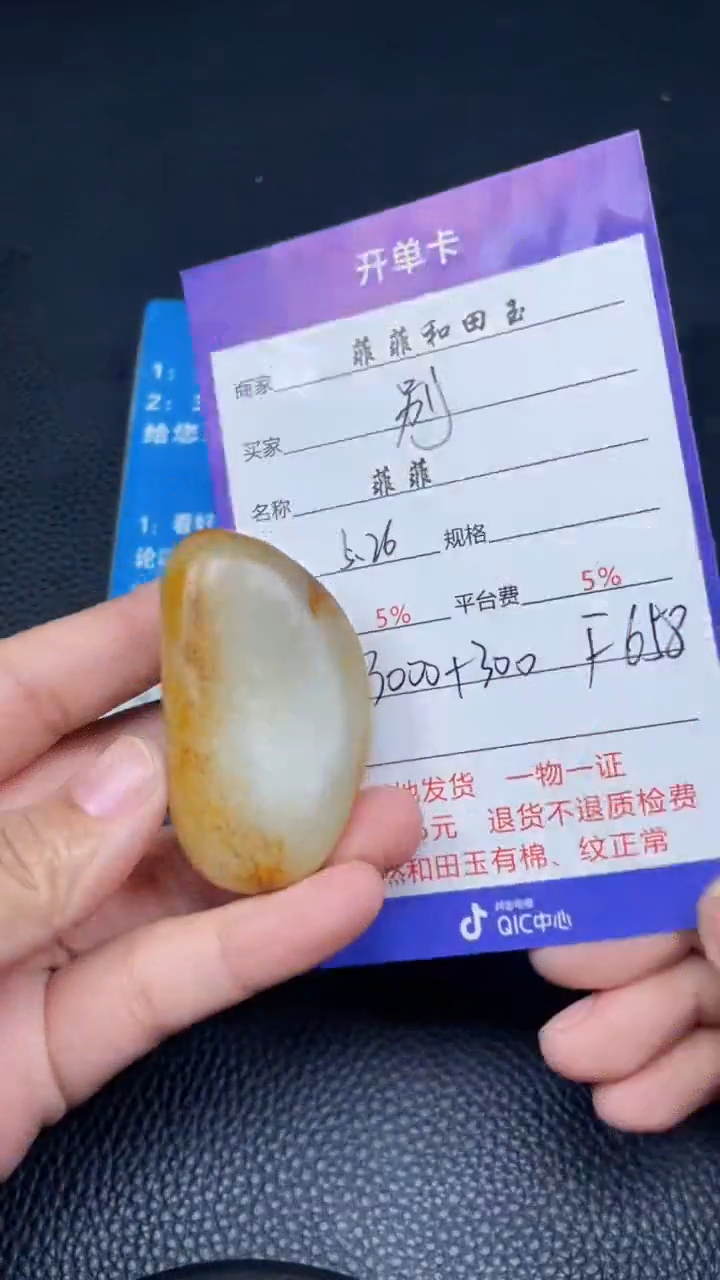 开单卡
商家 菲菲和田玉
买家 别
名称 菲菲
5.26 规格
5% 平台费 5%
3000+300 下658
地发货 一物一证
元 退货不退质检费
然和田玉有棉、纹正常
抖音电商
QIC中心
1:
2:
给您
1: 看好
论